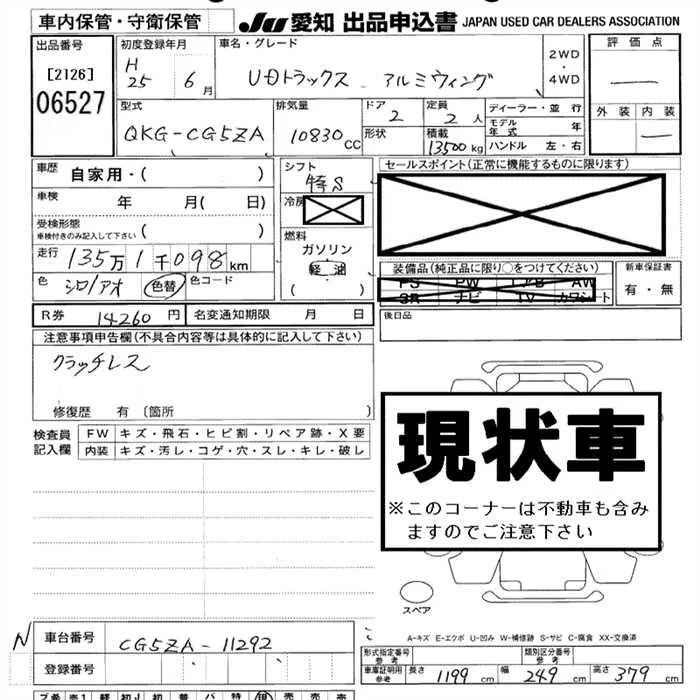 車内保管・守衛保管
JU 愛知 出品申込書 JAPAN USED CAR DEALERS ASSOCIATION
出品番号
[2126]
06527
初度登録年月
H
25 6月
車名・グレード
UDトラックス アルミウィング
2WD
・
4WD
評価点
外装 内装
型式
QKG-CG5ZA
排気量
10830 CC
ドア
2
形状
定員
2人
積載
13500 kg
ディーラー・並行
モデル年式 年
ハンドル 左・右
車歴
自家用・( )
車検
年 月( 日)
受検形態
車検付きのみ記入して下さい ( )
走行
135万1千098km
色
シロ/アオ 色替 色コード
R券 14260円
名変通知期限 月 日
シフト
特S
冷房
燃料
ガソリン
軽油
( )
セールスポイント(正常に機能するものに限ります)
装備品(純正品に限り○をつけてください)
PS PW エアB AW
SR ナビ TV カワシート
新車保証書
有・無
後日品
注意事項申告欄(不具合内容等は具体的に記入して下さい)
クラッチレス
修復歴 有〔箇所
検査員記入欄
FW キズ・飛石・ヒビ割・リペア跡・X要
内装 キズ・汚レ・コゲ・穴・スレ・キレ・破レ
現状車
※このコーナーは不動車も含み
ますのでご注意下さい
スペア
A-キズ E-エクボ U-凹み W-補修跡 S-サビ C-腐食 XX-交換済
N
車台番号 CG5ZA-11292
登録番号
形式指定番号
参考
類別区分番号
参考
車庫証明用
参考
長さ 1199 cm 幅 249 cm 高さ 379 cm